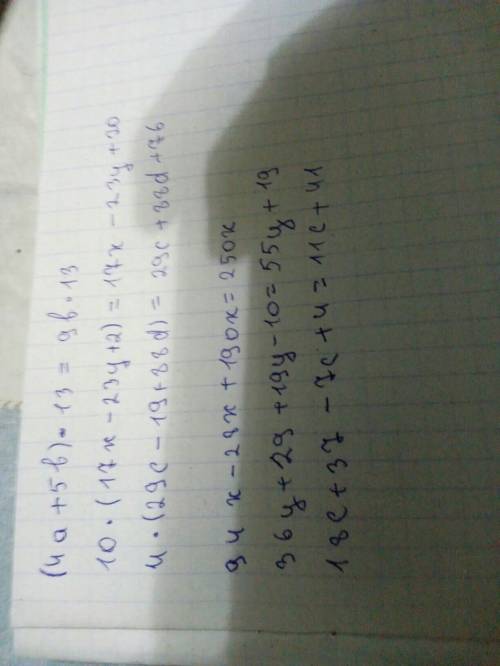 (4a + 5b) • 13 = 9b • 13
10 • (17x - 23y + 2) = 17x - 23y + 20
4 • (29c - 19 + 88d) = 29c + 88d + 76
94x - 28x + 190x = 250x
36y + 29 + 19y - 10 = 55y + 19
18c + 37 - 7c + 4 = 11c + 41